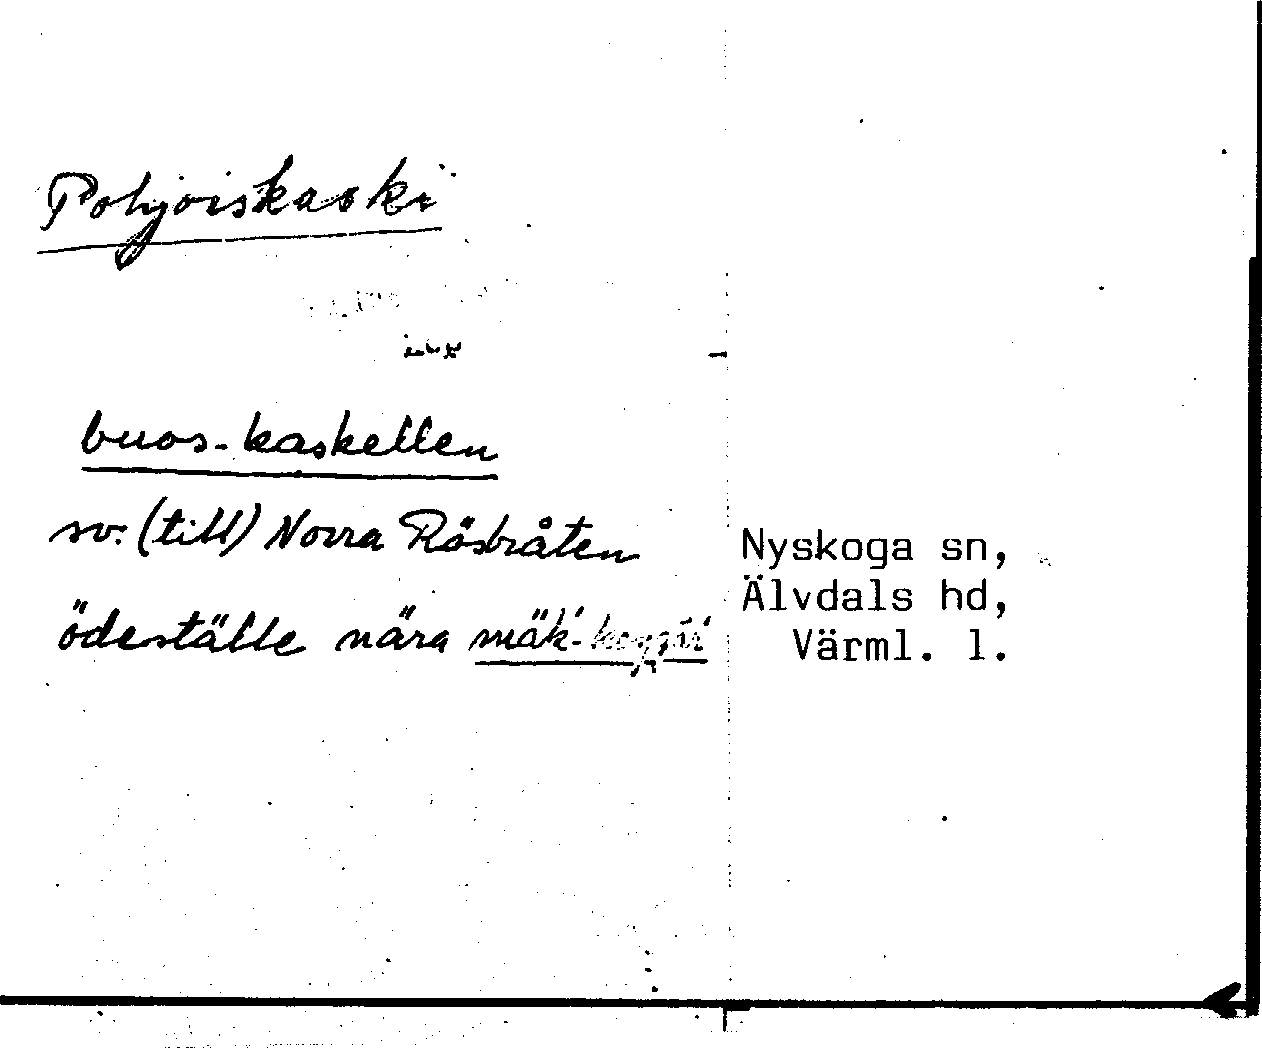 Pohjoiskaski
buos-kaskellen
sv. (till) Norra Rösbråten
ödeställe nära mäk-
Nyskoga sn,
Älvdals hd,
Värml. l.